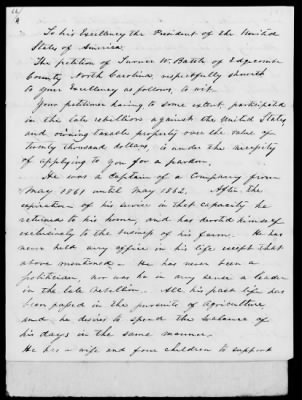 To his Excellency the President of the United
States of America.
The petition of Turner W. Battle of Edgecombe
County North Carolina, respectfully sheweth
to your Excellency as follows, to wit.
Your petitioner having to some extent participated
in the late rebellion against the United States,
and owning taxable property over the value of
twenty thousand dollars, is under the necessity
of applying to you for a pardon.
He was a Captain of a Company from
May 1861 until May 1862. After the
expiration of his service in that capacity he
returned to his home, and has devoted himself
exclusively to the business of his farm. He has
never held any office in his life except that
above mentioned. He has never been a
politician, nor was he in any sense a leader
in the late Rebellion. All his past life has
been passed in the pursuits of Agriculture
and he desires to spend the balance of
his days in the same manner.
He has a wife and four children to support